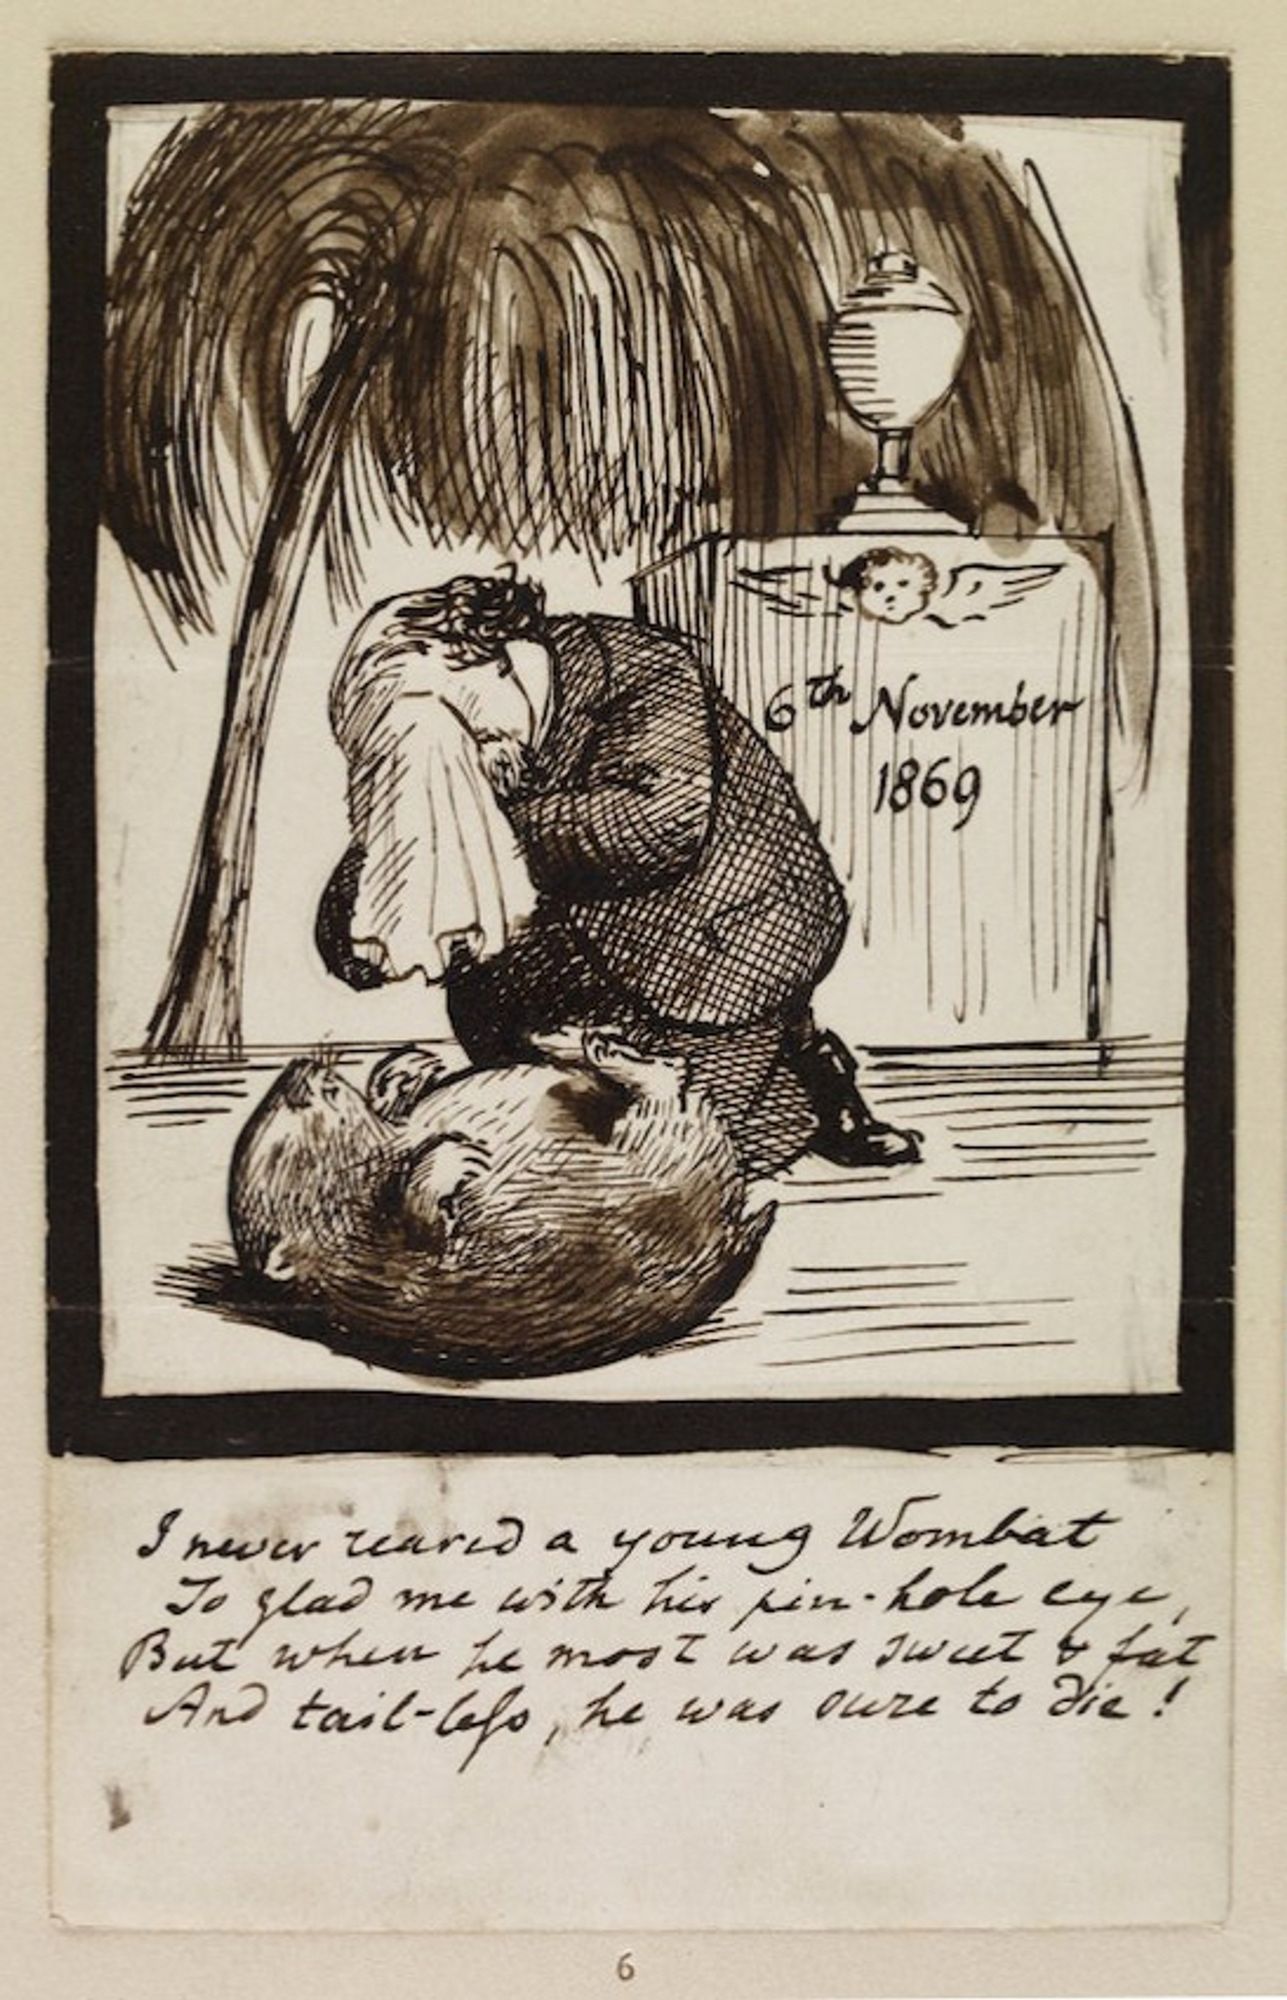 6th November
1869
I never reared a young Wombat
To glad me with his pin-hole eye,
But when he most was sweet & fat
And tail-less, he was sure to die!
6